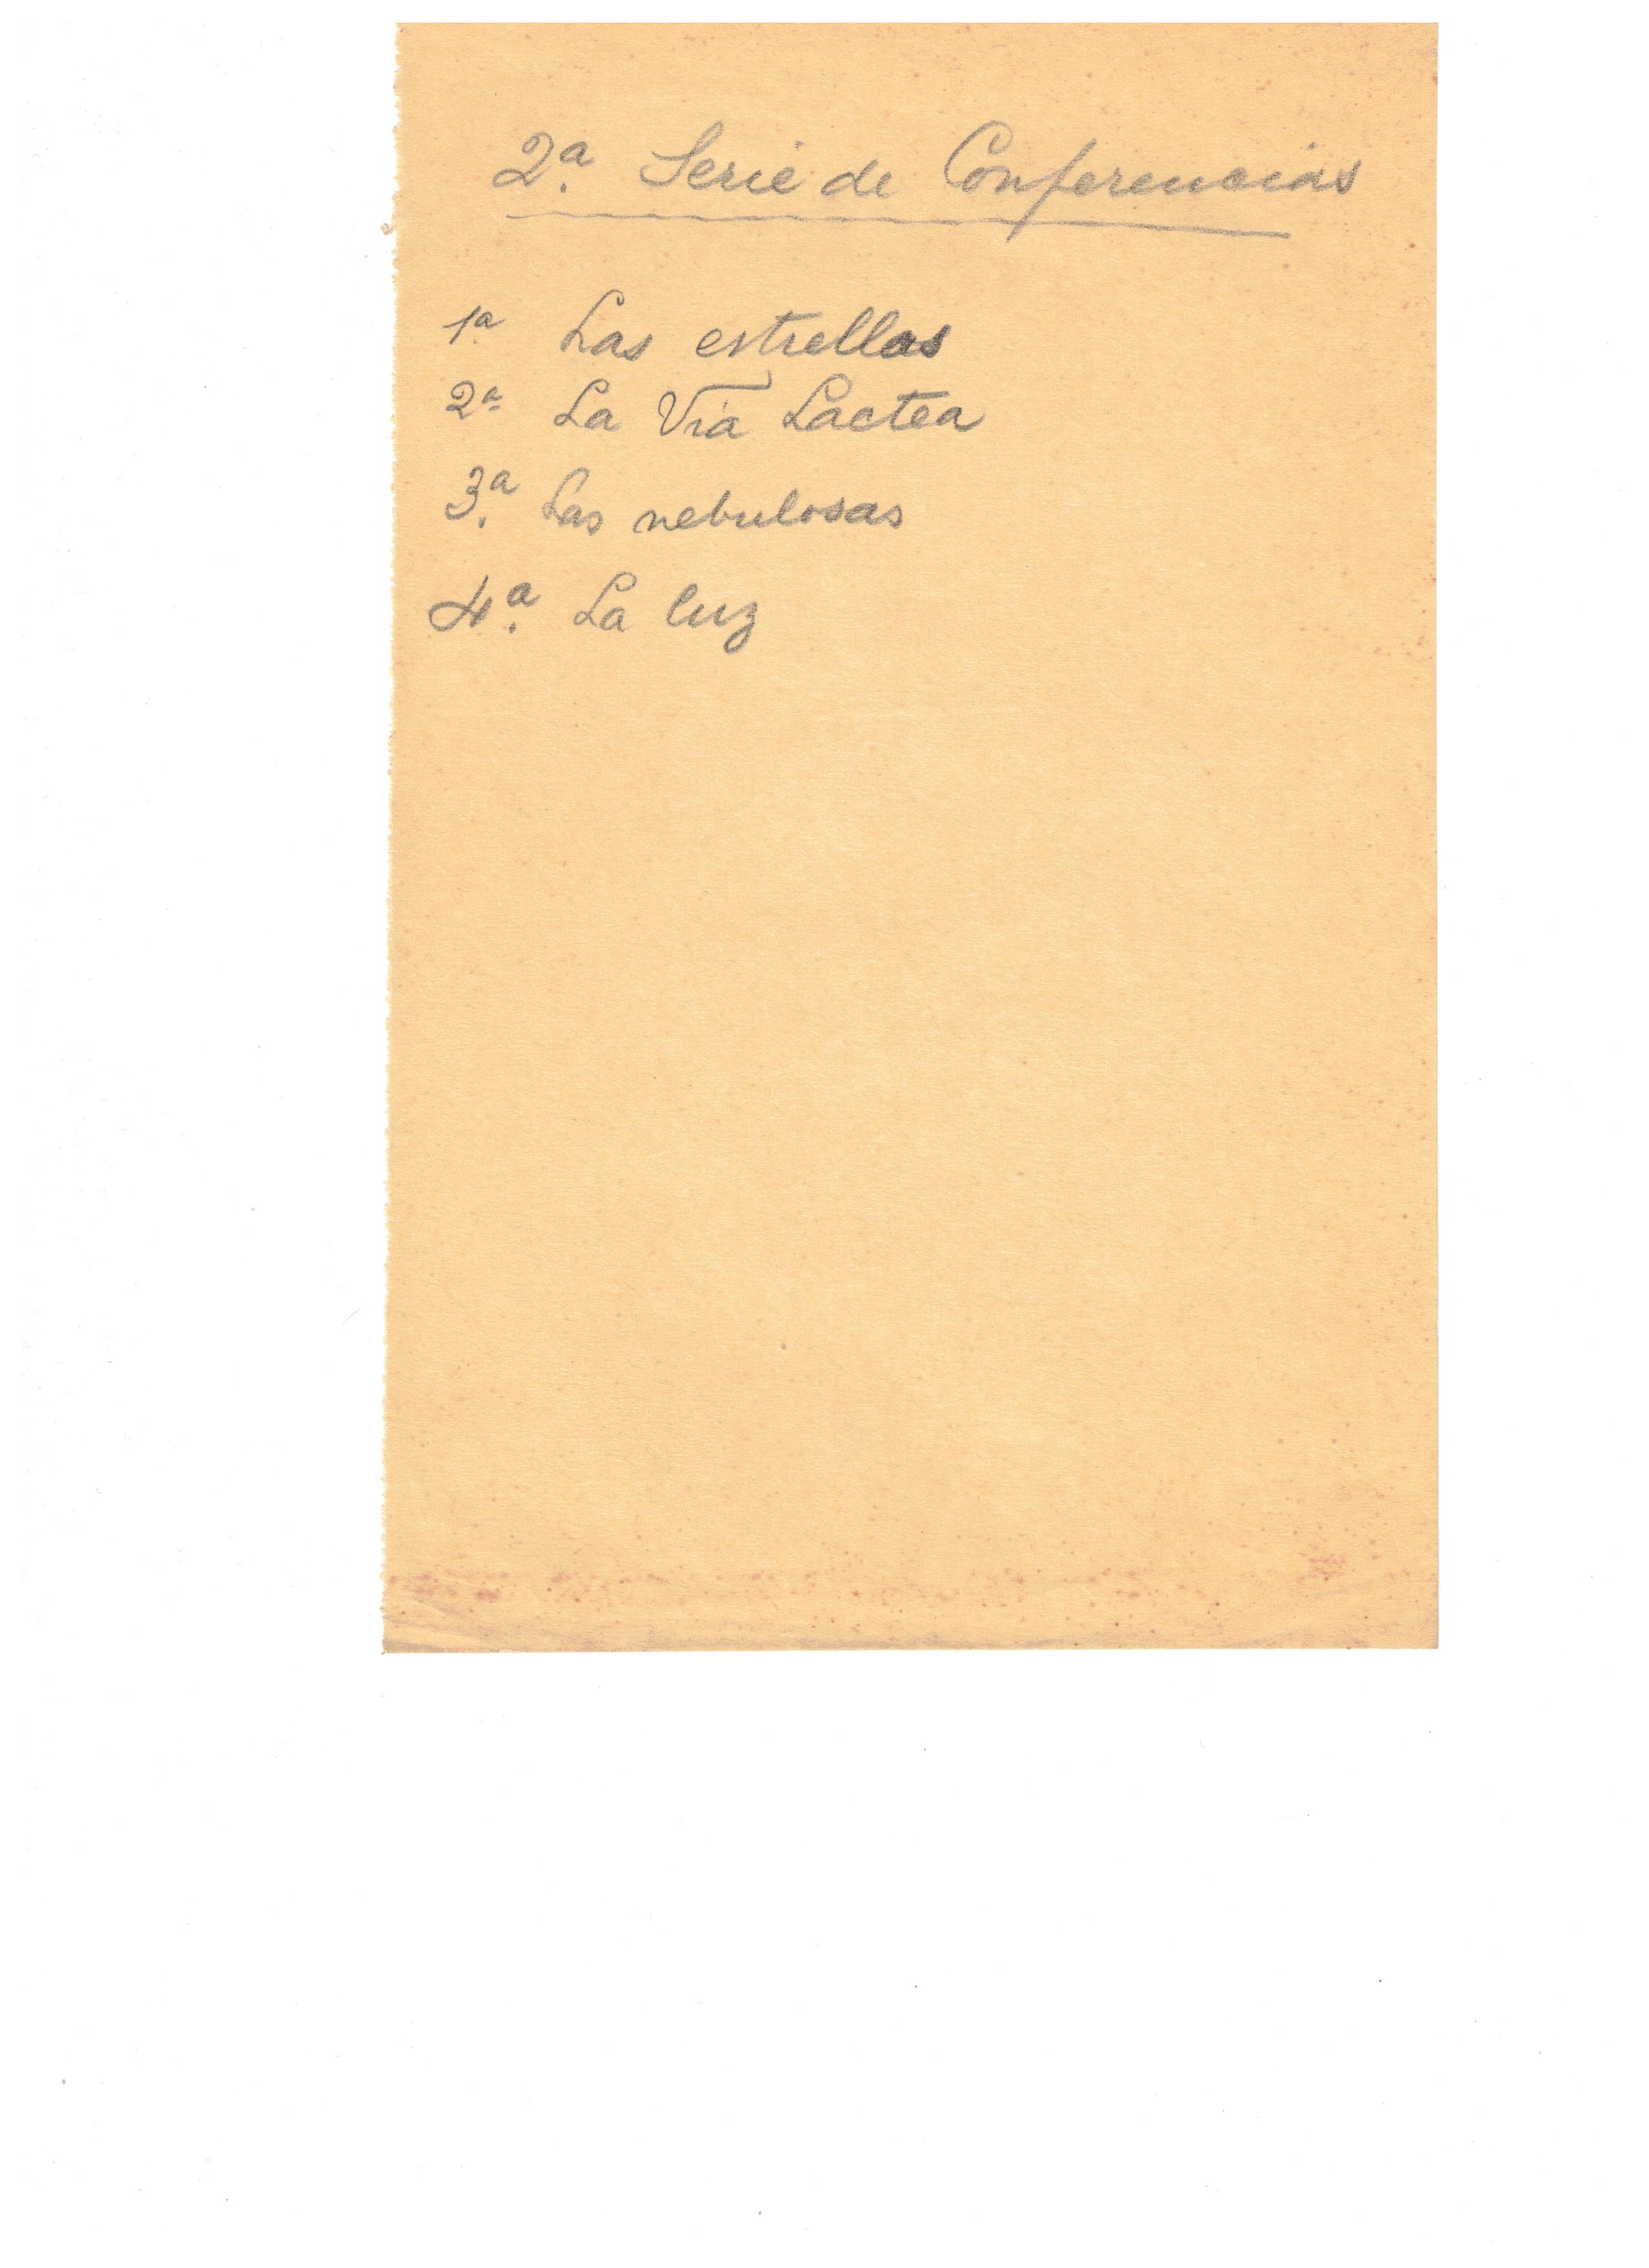 2.ª Serie de Conferencias
1.ª Las estrellas
2ª La Via Lactea
3.ª Las nebulosas
4.ª La luz